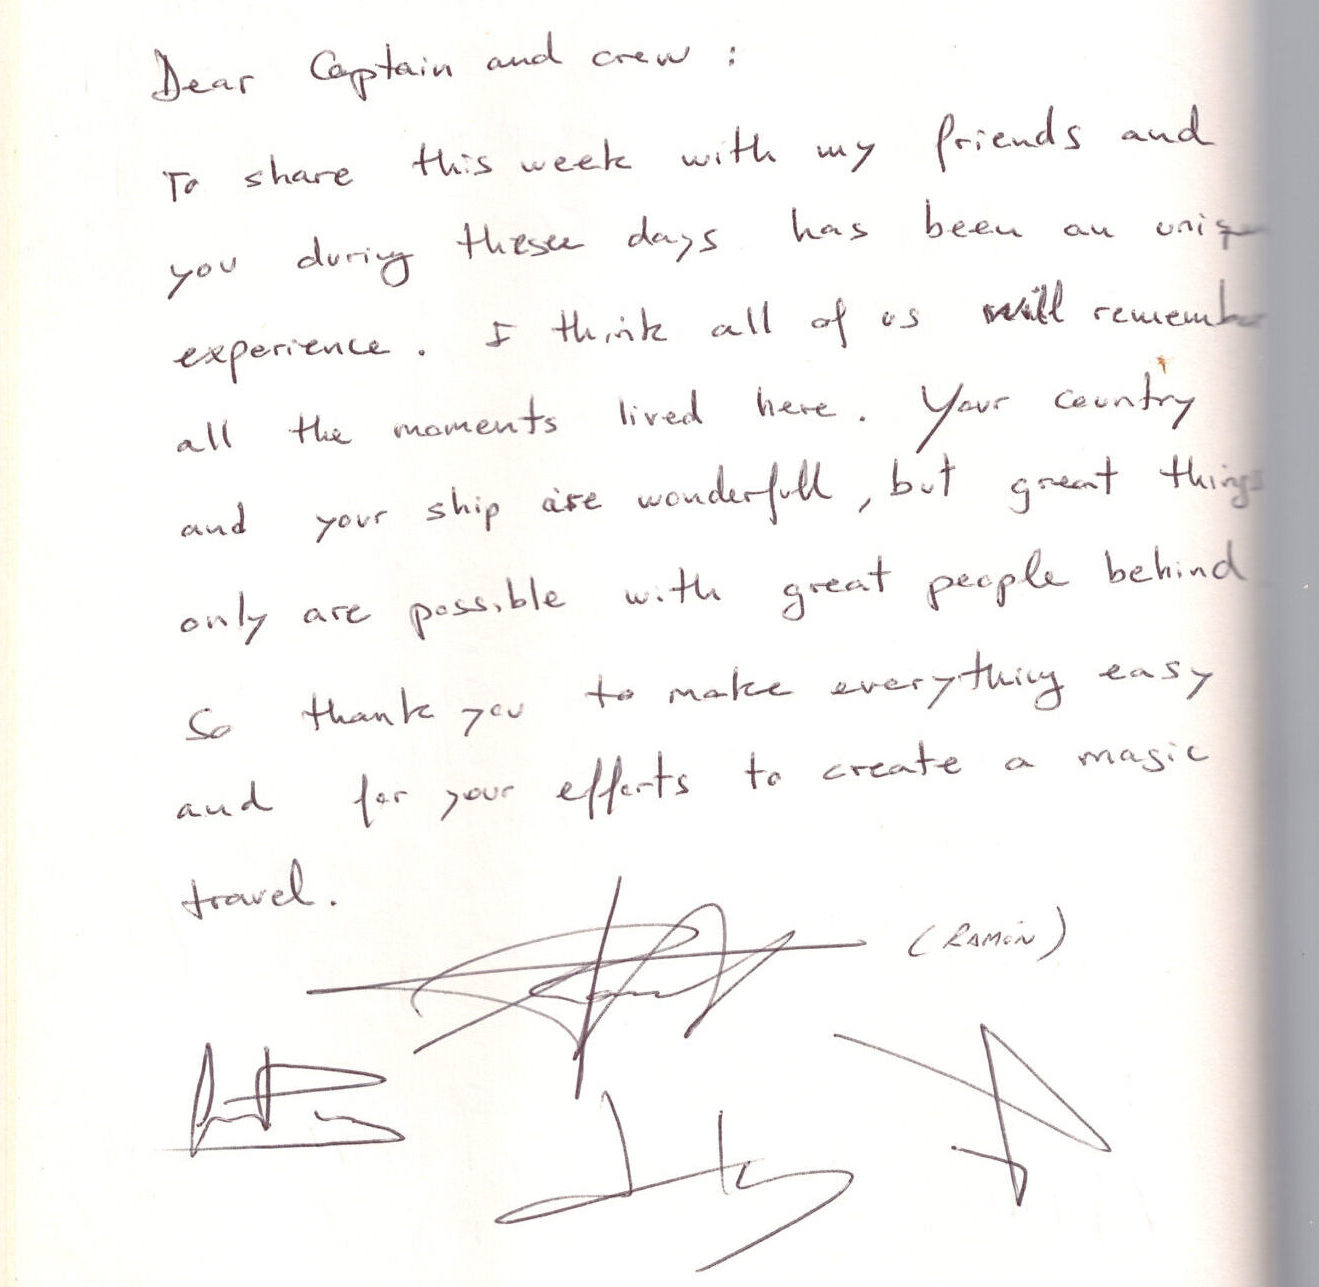 Dear Captain and crew :
To share this week with my friends and
you during thesee days has been an uniq
experience. I think all of us will remember
all the moments lived here. Your country
and your ship are wonderfull, but great things
only are possible with great people behind
So thank you to make everything easy
and for your efforts to create a magic
travel.
(RAMÓN)